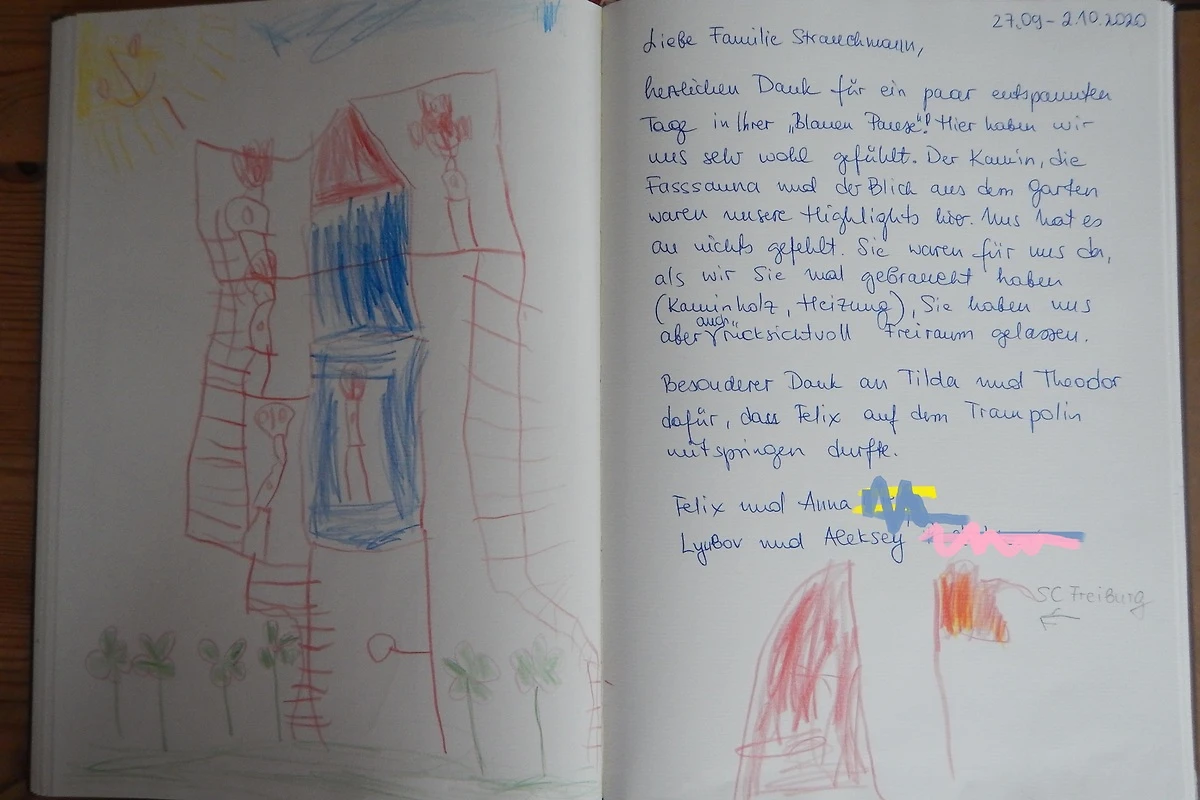 27.09 - 2.10.2020
Liebe Familie Strauchmann,
herzlichen Dank für ein paar entspannten
Tage in Ihrer „Blauen Pause"! Hier haben wir
uns sehr wohl gefühlt. Der Kamin, die
Fasssauna und der Blick aus dem Garten
waren unsere Highlights hier. Uns hat es
an nichts gefehlt. Sie waren für uns da,
als wir Sie mal gebraucht haben
(Kaminholz, Heizung), Sie haben uns
aber auch rücksichtvoll Freiraum gelassen.
Besonderer Dank an Tilda und Theodor
dafür, dass Felix auf dem Trampolin
mitspringen durfte.
Felix und Anna
Lyubov und Aleksey
SC Freiburg